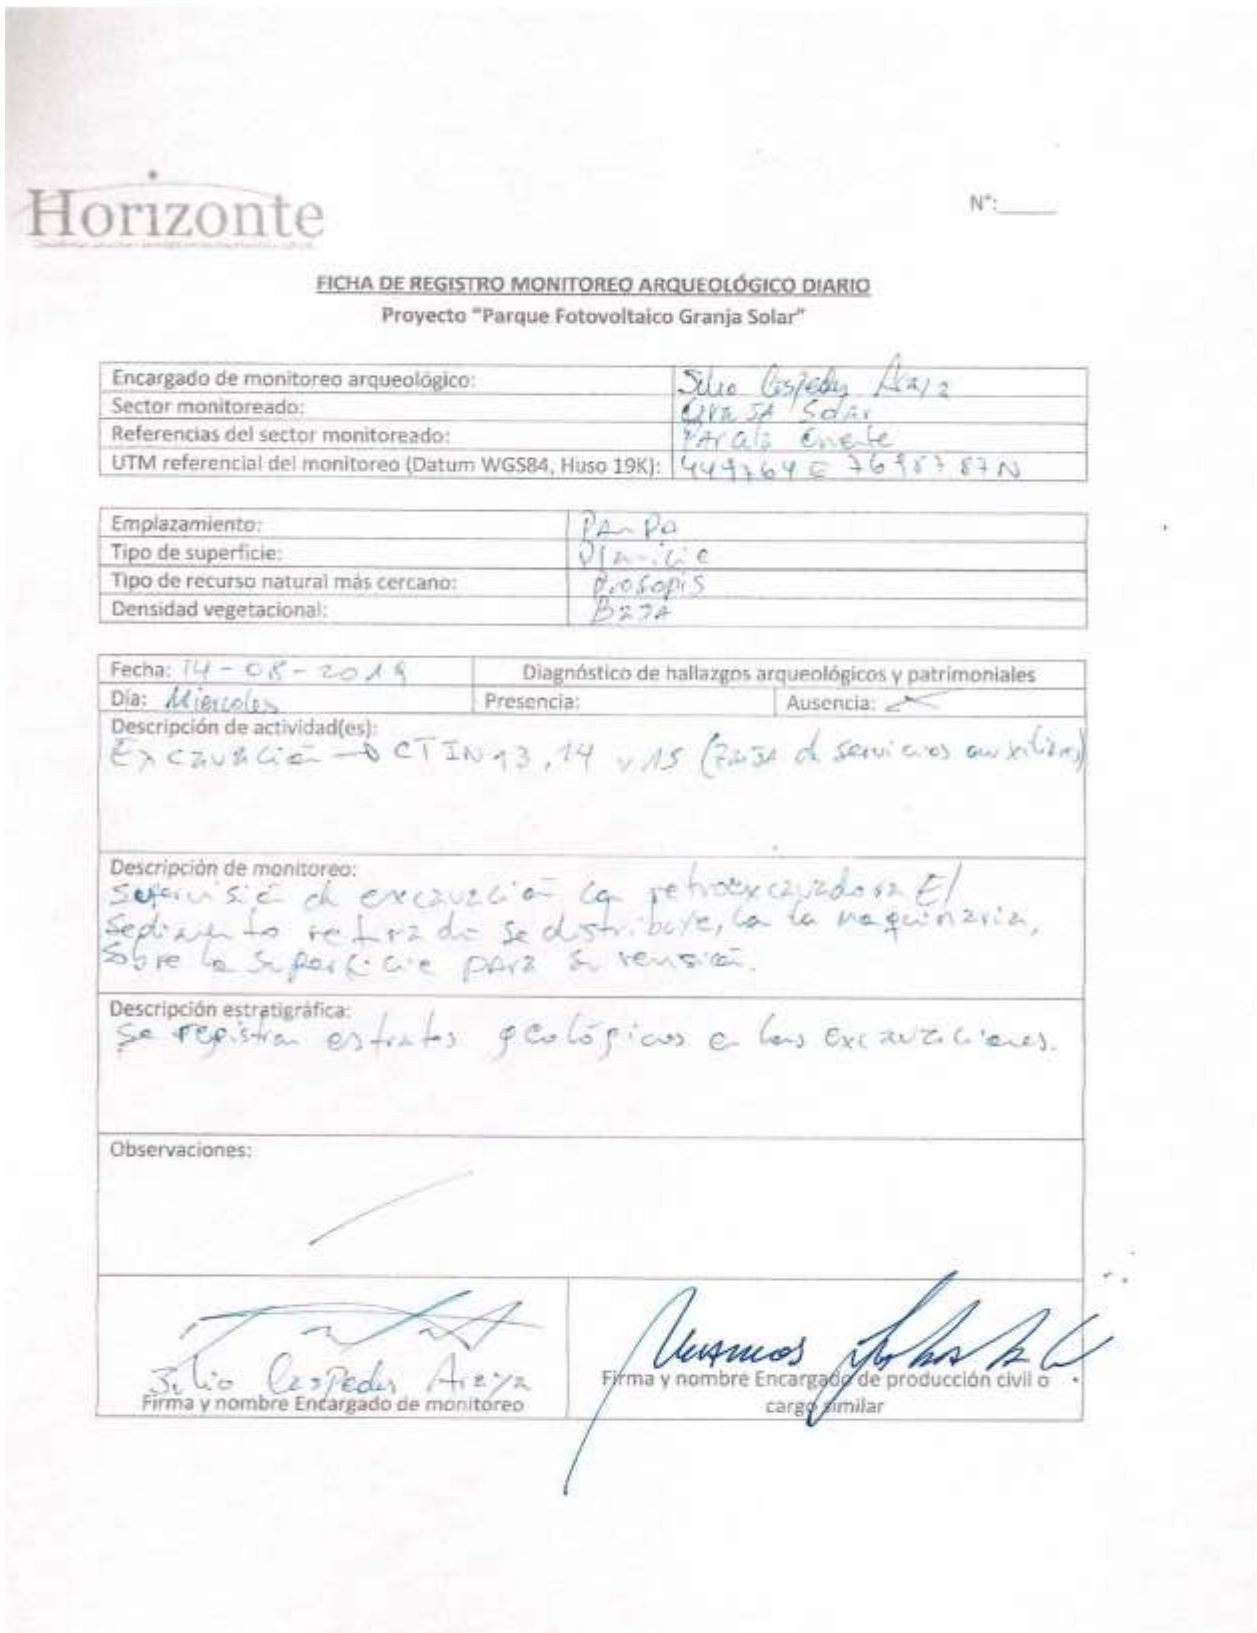 Horizonte
N°:_____
FICHA DE REGISTRO MONITOREO ARQUEOLÓGICO DIARIO
Proyecto "Parque Fotovoltaico Granja Solar"
Encargado de monitoreo arqueológico: Julio Cespedes Araya
Sector monitoreado: Granja Solar
Referencias del sector monitoreado: Oriente
UTM referencial del monitoreo (Datum WGS84, Huso 19K): 449764 E 7698787 N
Emplazamiento: PAmPa
Tipo de superficie: Planicie
Tipo de recurso natural más cercano: Prosopis
Densidad vegetacional: BAJA
Fecha: 14-08-2019 Diagnóstico de hallazgos arqueológicos y patrimoniales
Día: Miercoles Presencia: Ausencia: X
Descripción de actividad(es):
Excavación → CTIN 13, 14 y 15 (zanja de servicios auxiliares)
Descripción de monitoreo:
Supervisión de excavación con retroexcavadora El
Sedimento retirado se distribuye, con la maquinaria,
Sobre la superficie para su revisión.
Descripción estratigráfica:
Se registran estratos geológicos en las excavaciones.
Observaciones:
Julio Cespedes Araya
Firma y nombre Encargado de monitoreo
Firma y nombre Encargado de producción civil o
cargo similar